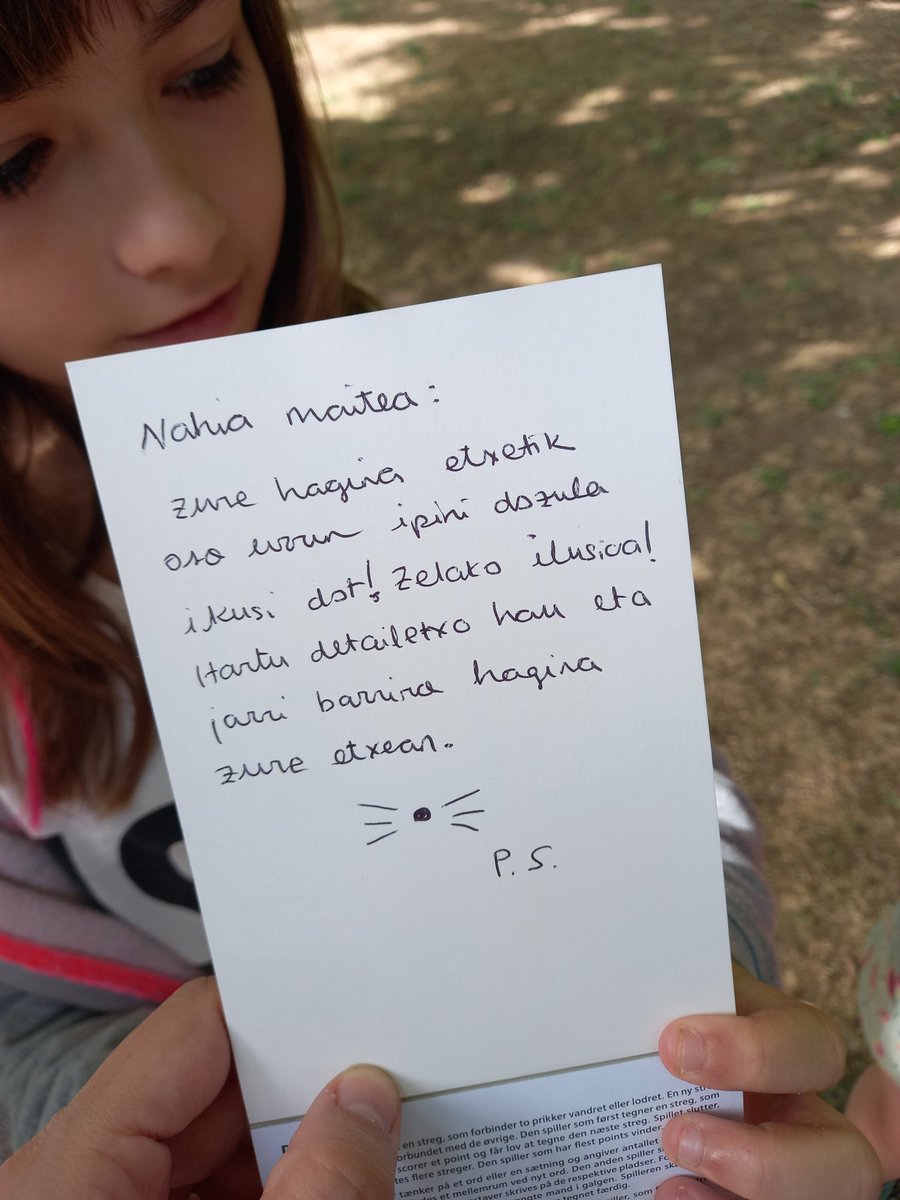 Nahia maitea:
zure hagina etxetik
oso urrun ipini dozula
ikusi dot! Zelako ilusioa!
Hartu detailetxo hau eta
jarri barrira hagina
zure etxean.
P. S.
en streg, som forbinder to prikker vandret eller lodret. En ny
forbundet med de øvrige. Den spiller som først tegner en streg, som
scorer et point og får lov at tegne den næste streg. Spillet slutter,
flere streger. Den spiller som har flest points vinder.
tænker på et ord eller en sætning og angiver antallet
et mellemrum ved nyt ord. Den anden spiller
skrives på de respektive pladser.
mand i galgen. Spilleren
tegnet færdig.